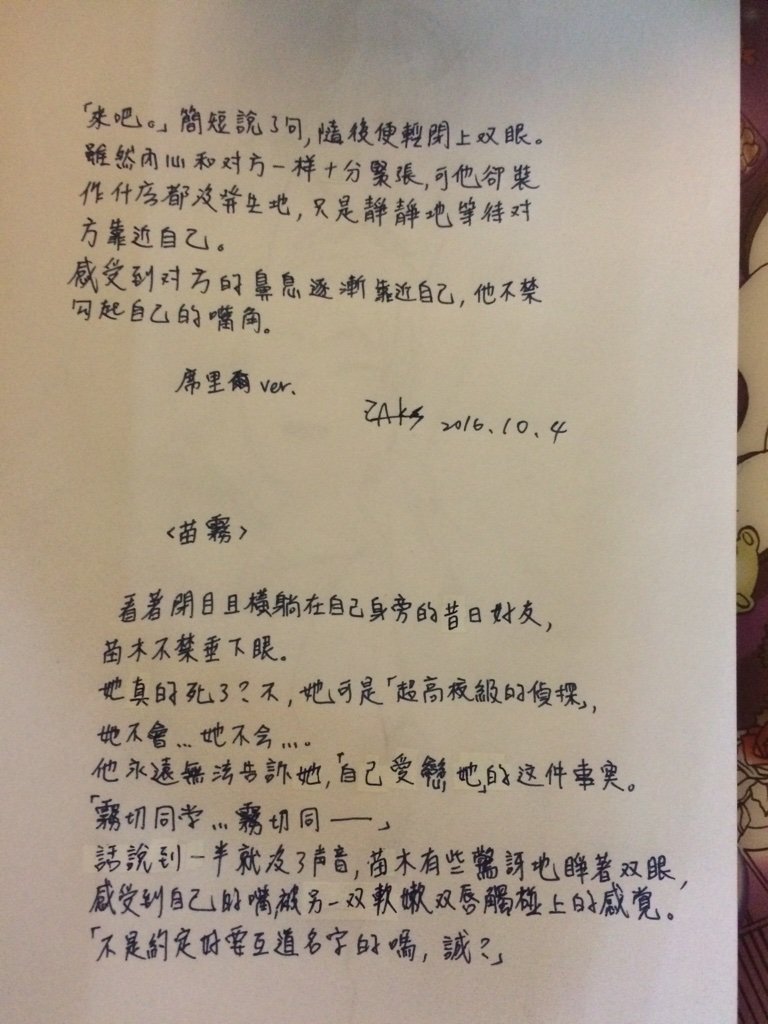 「來吧。」簡短說了句,隨後便輕閉上双眼。
雖然內心和对方一样十分緊張,可他卻裝
作什么都沒發生地,只是靜靜地等待对
方靠近自己。
感受到对方的鼻息逐漸靠近自己,他不禁
勾起自己的嘴角。
席里爾 ver.
2016.10.4
<苗霧>
看著閉目且橫躺在自己身旁的昔日好友,
苗木不禁垂下眼。
她真的死了?不,她可是「超高校級的偵探」,
她不會…她不会…。
他永遠無法告訴她,「自己愛戀她」的这件事实。
「霧切同学…霧切同——」
話說到一半就沒了声音,苗木有些驚訝地睜著双眼,
感受到自己的嘴被另一双軟嫩双唇觸碰上的感覚。
「不是約定好要互道名字的嗎,誠?」